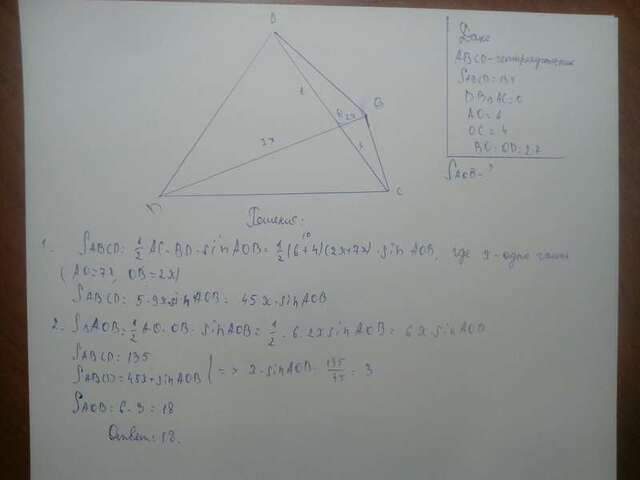 Дано
ABCD - четырехугольник
S ABCD = 135
DB ∩ AC = O
AO = 6
OC = 4
BO : OD = 2:7
S AOB - ?
B
C
7x
2x
Решение:
10
1. S ABCD = 1/2 AC · BD · sin AOB = 1/2 (6+4)(2x+7x) · sin AOB, где x - одна часть
(AO=7x, OB=2x)
S ABCD = 5 · 9x sin AOB = 45x · sin AOB
2. S AOB = 1/2 AO · OB · sin AOB = 1/2 · 6 · 2x sin AOB = 6x · sin AOB
S ABCD = 135
S ABCD = 45x · sin AOB | => x · sin AOB = 135/45 = 3
S AOB = 6 · 3 = 18
Ответ: 18.